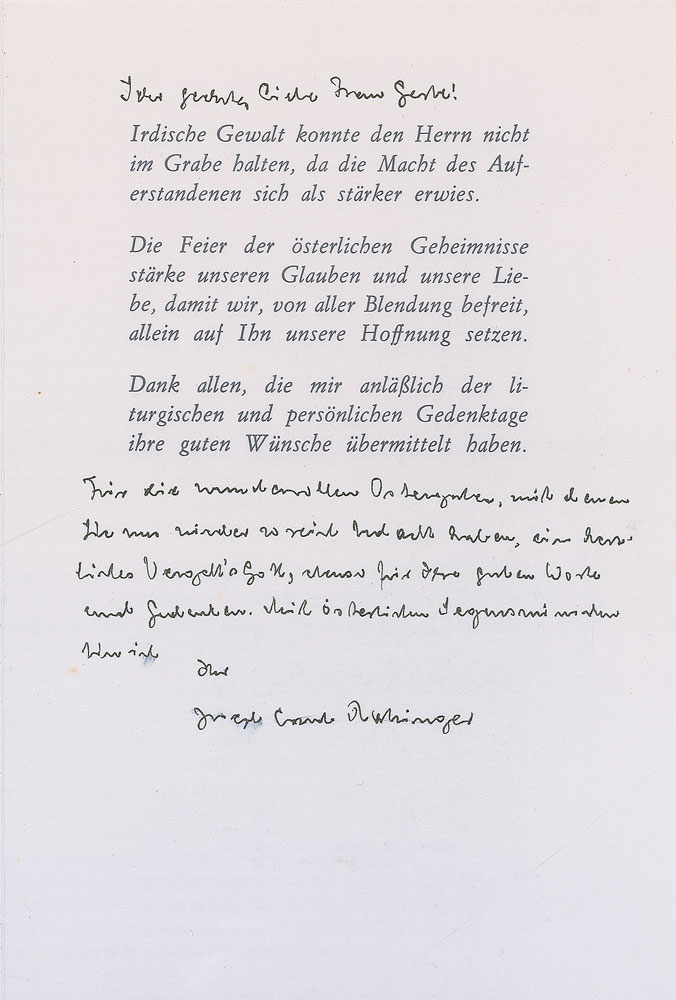 Sehr geehrte, liebe Frau
Irdische Gewalt konnte den Herrn nicht
im Grabe halten, da die Macht des Auf-
erstandenen sich als stärker erwies.
Die Feier der österlichen Geheimnisse
stärke unseren Glauben und unsere Lie-
be, damit wir, von aller Blendung befreit,
allein auf Ihn unsere Hoffnung setzen.
Dank allen, die mir anläßlich der li-
turgischen und persönlichen Gedenktage
ihre guten Wünsche übermittelt haben.
Für die wundervollen Ostergaben, mit denen
Sie uns wieder so reich bedacht haben, ein herz-
liches Vergelt's Gott, ebenso für Ihre guten Worte
und Gedenken. Mit österlichen Segenswünschen
bin ich
Ihr
Joseph Card. Ratzinger